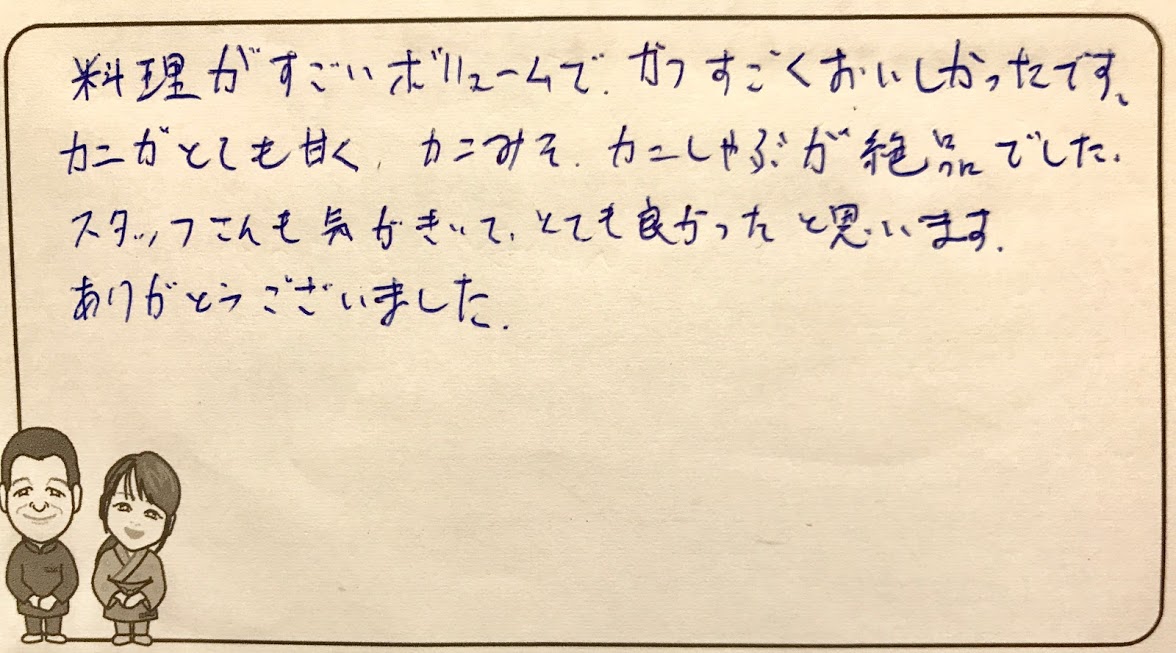 料理がすごいボリュームで、かつすごくおいしかったです。
カニがとても甘く、カニみそ、カニしゃぶが絶品でした。
スタッフさんも気がきいて、とても良かったと思います。
ありがとうございました。